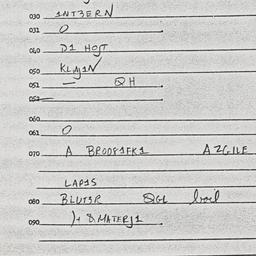 030 1NT3ERN
031 0
040 D1 HOJT
050
051 — QH
052
060
061 0
070 A BROO81FK1 AZGILE
LAP1S
080 BLUT3R QGL
090 8.MATERJ1